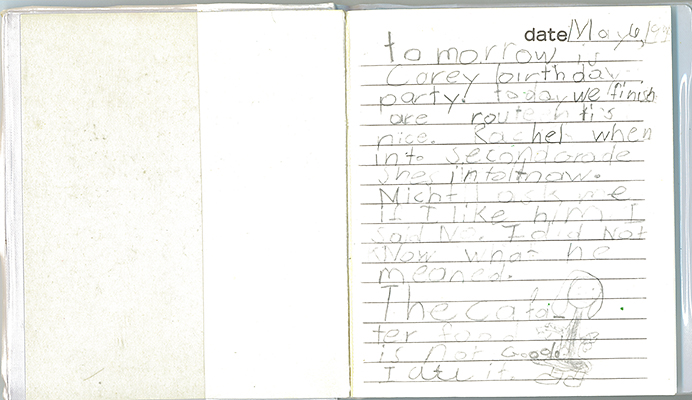 date May 6, 199
tomorrow is
Corey birthday
party. today we finish
are route tis
nice. Rachel when
into second grade
shes into know.
Micht ask me
if I like him I
said No. I did Not
Now what he
meaned.
The cafa
ter food
is not good.
I ate it.